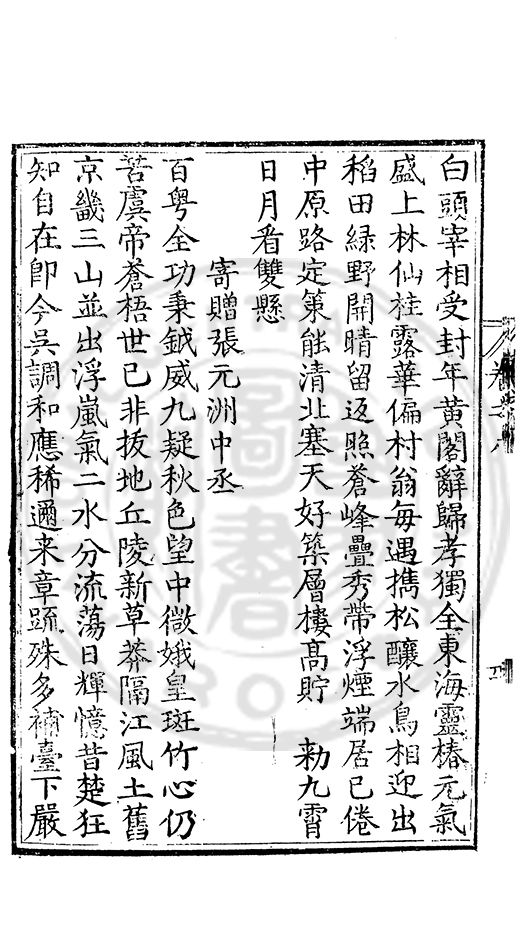 白頭宰相受封年黃閣辭歸孝獨全東海靈椿元氣
盛上林仙桂露華偏村翁每遇攜松釀水鳥相迎出
稻田綠野開晴留返照蒼峰疊秀帶浮煙端居已倦
中原路定策能清北塞天好築層樓高貯　勑九霄
日月看雙懸
寄贈張元洲中丞
百粵全功秉鉞威九疑秋色望中微娥皇斑竹心仍
苦虞帝蒼梧世已非拔地丘陵新草莽隔江風土舊
京畿三山並出浮嵐氣二水分流蕩日輝憶昔楚狂
知自在卽今吳調和應稀邇来章䟽殊多補臺下嚴